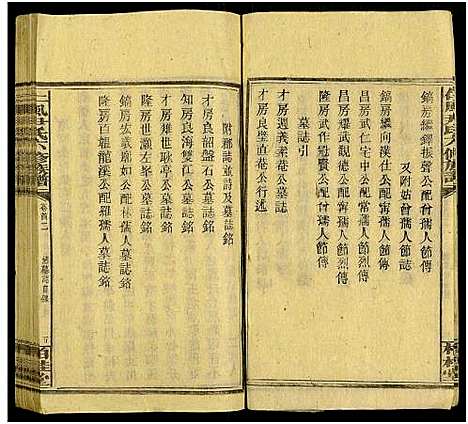 鎬房纘鐸振聲公配曾孺人節傳
又附姑曾孺人節誌
鎬房纘向漢仕公配甯孺人節傳
昌房武仁宅中公配甯孺人節烈傳
昌房武耀武觀德公配甯孺人節烈傳
隆房武作公配曾孺人節傳
墓誌
才房週義素菴公墓誌
才房良璧直菴公行述
附鄒誌並詩及墓誌銘
才房良韶盤石公墓誌銘
知房良海雙江公墓誌銘
才房雉世耿亭公墓誌銘
隆房世灝左峯公墓誌銘
鎬房宏義廓如公配林孺人墓誌銘
隆房百輥龍溪公配羅孺人墓誌銘
氏六修族譜
卷首二
墓誌目錄
五
栢桂堂